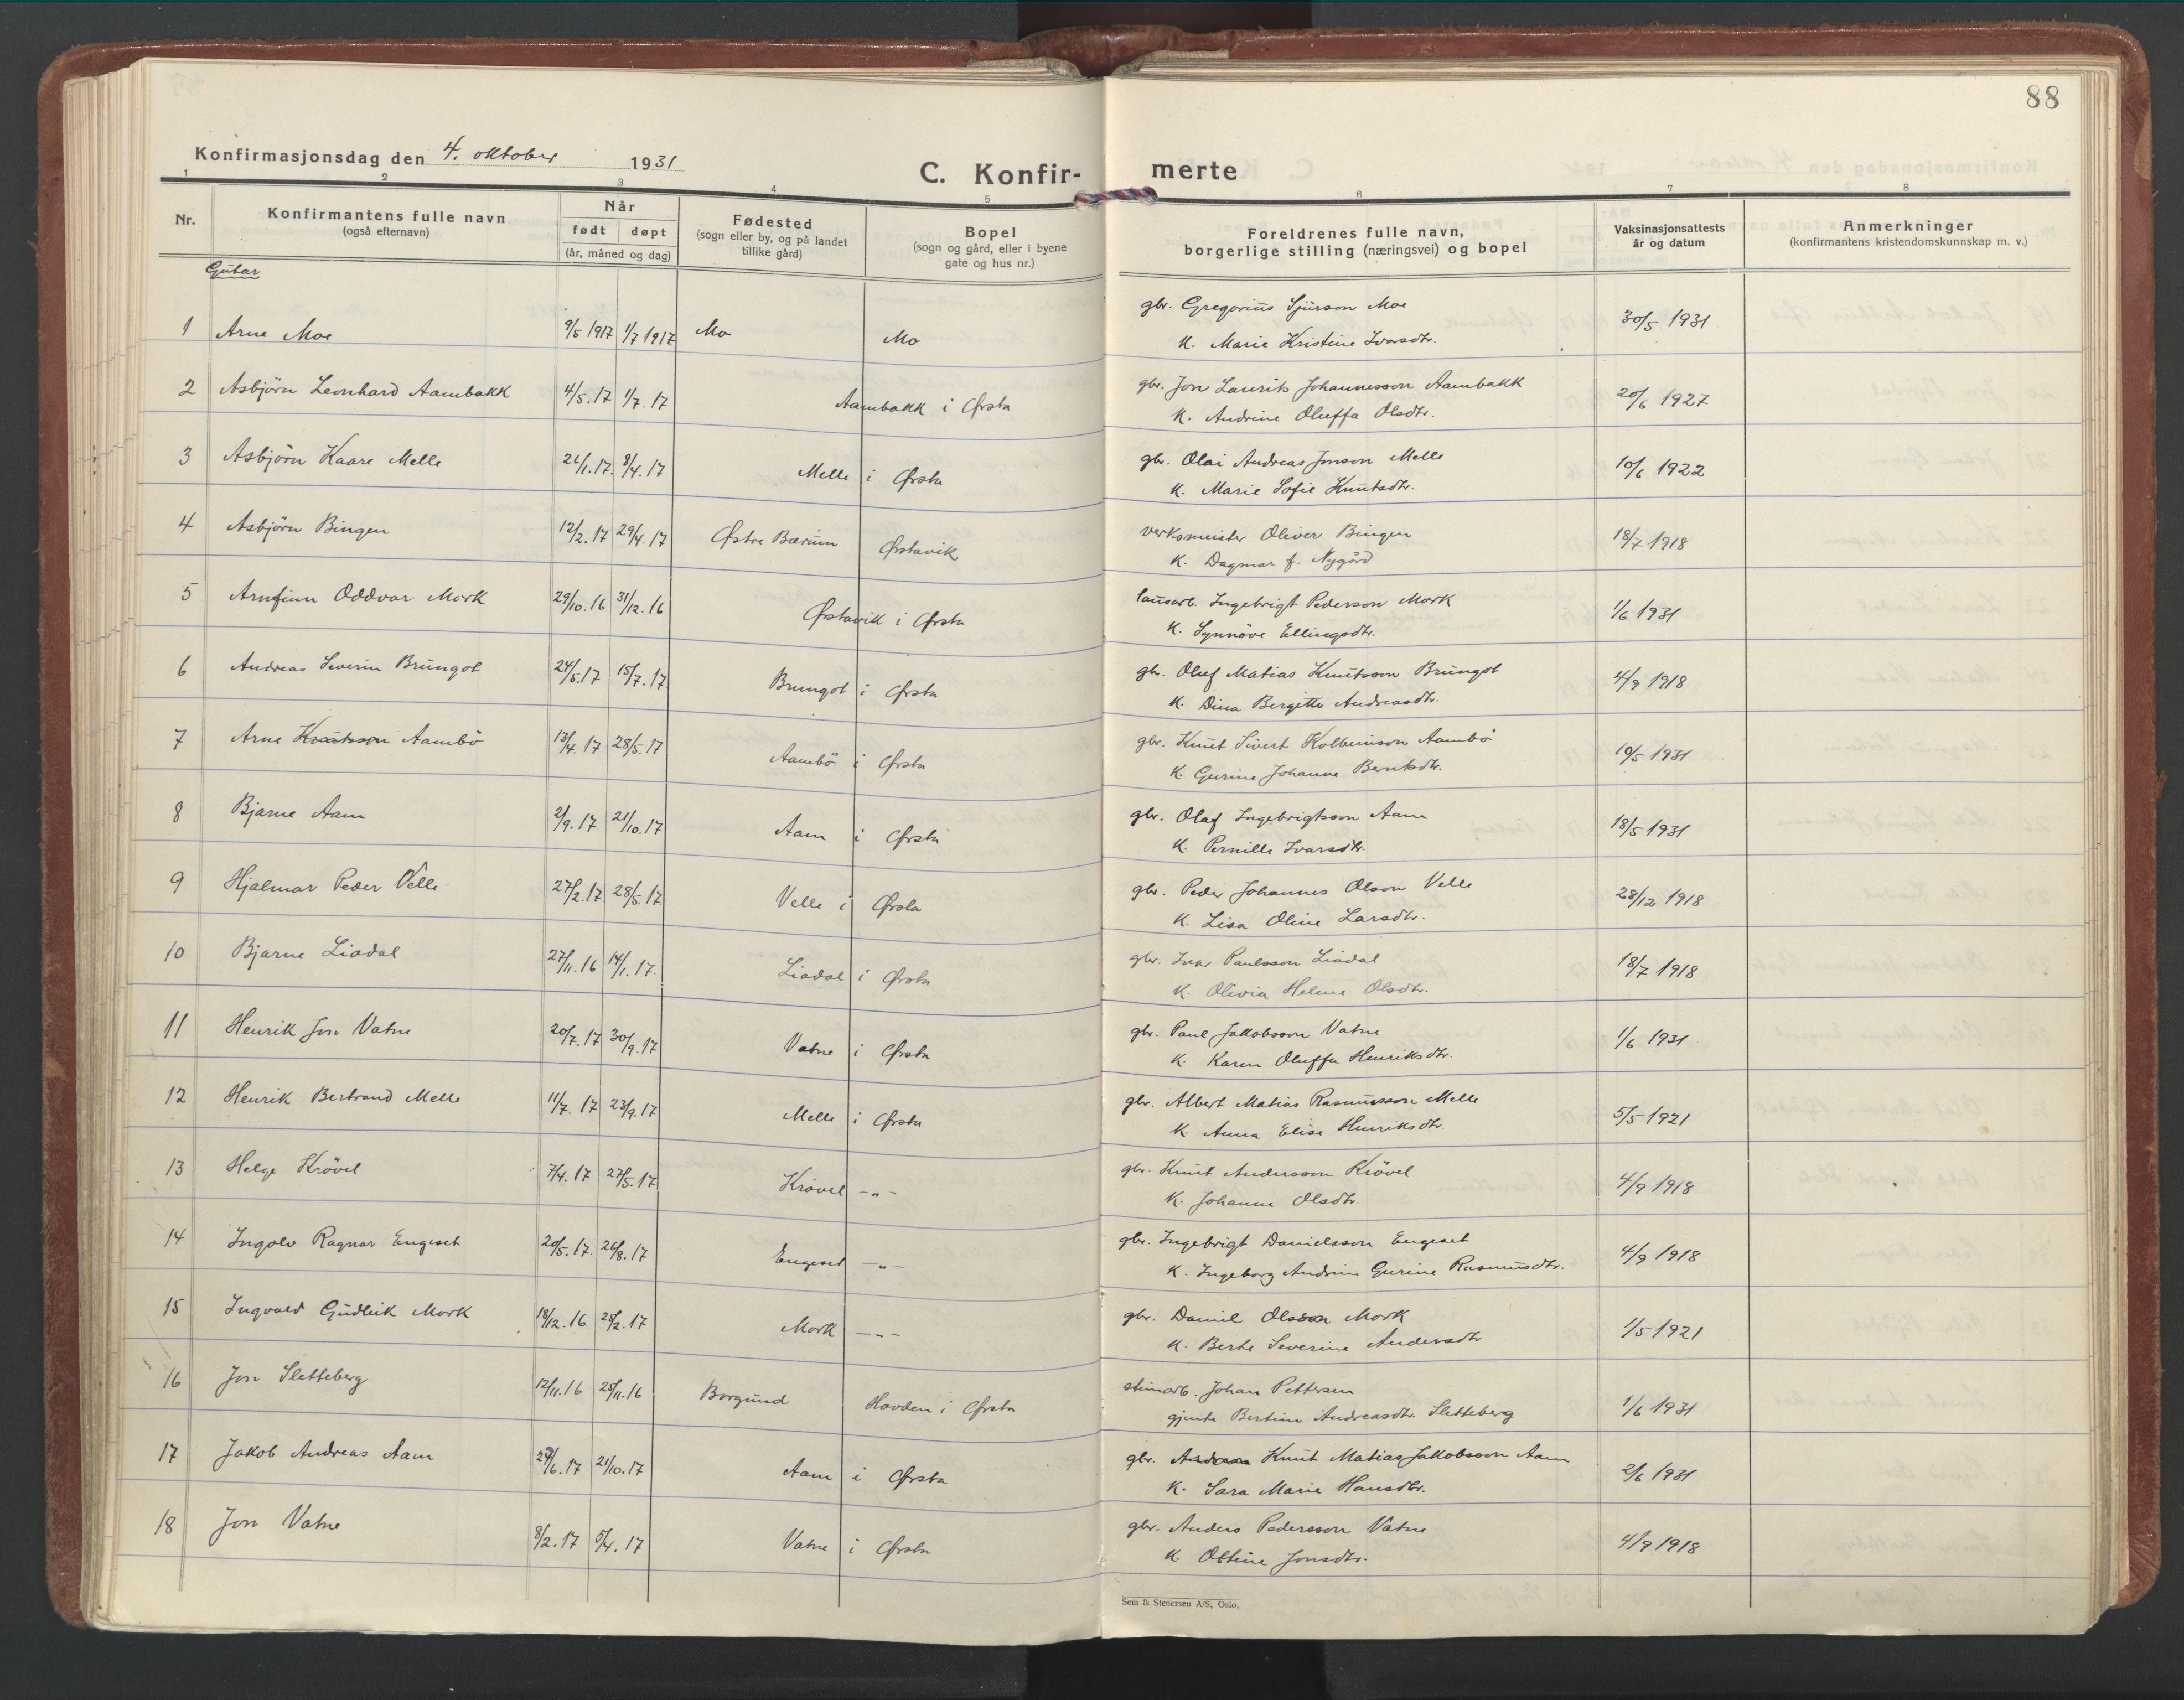 88
Konfirmasjonsdag den 4. oktober 1931
C. Konfir- merte
1 2 3 4 5 6 7 8
Nr.
Konfirmantens fulle navn
(også efternavn)
Når
født døpt
(år, måned og dag)
Fødested
(sogn eller by, og på landet
tillike gård)
Bopel
(sogn og gård, eller i byene
gate og hus nr.)
Foreldrenes fulle navn,
borgerlige stilling (næringsvei) og bopel
Vaksinasjonsattests
år og datum
Anmerkninger
(konfirmantens kristendomskunnskap m. v.)
Gutar
1 Arne Moe 9/5 1917 1/7 1917 Mo Mo gbr. Gregorius Sjurson Moe 30/5 1931
K. Marie Kristine Ivarsdtr.
2 Asbjörn Leonhard Aambakk 4/5. 17 1/7. 17 Aambakk i Ørsta gbr. Jon Laurits Johannesson Aambakk 20/6 1927
K. Andrine Oluffa Olsdtr.
3 Asbjörn Kaare Melle 21/1. 17. 8/4. 17 Melle i Ørsta gbr. Olai Andreas Jonson Melle 10/6 1922
K. Marie Sofie Knutsdtr.
4 Asbjörn Bingen 12/2. 17 29/4. 17 Østre Bærum Ørstavik verksmeister Oliver Bingen 18/7 1918
K. Dagmar f. Nygård
5 Arnfinn Oddvar Mork 29/10. 16 31/12. 16 Ørstavik i Ørsta lausarb. Ingebrigt Pederson Mork 1/6 1931
K. Synnöve Ellingsdtr.
6 Andreas Severin Brungot 24/5. 17 15/7. 17. Brungot i Ørsta gbr. Oluf Matias Knutsson Brungot 4/9 1918
K. Dina Bergitte Andreasdtr.
7 Arne Knutsson Aambö 13/4. 17 28/5. 17 Aambö i Ørsta gbr. Knut Sivert Kolbeinson Aambö 10/5 1931
K. Gurine Johanne Berntsdtr.
8 Bjarne Aam 2/9. 17 21/10. 17 Aam i Ørsta gbr. Olaf Ingebrigtsson Aam 18/5 1931
K. Pernille Ivarsdtr.
9 Hjalmar Peder Velle 27/2. 17. 28/5. 17 Velle i Ørsta gbr. Peder Johannes Olson Velle 28/12 1918
K. Lisa Oline Larsdtr.
10 Bjarne Liadal 27/11. 16 14/1. 17. Liadal i Ørsta gbr. Ivar Paulsson Liadal 18/7 1918
K. Olivia Helene Olsdtr.
11 Henrik Jon Vatne 20/7. 17 30/9. 17 Vatne i Ørsta gbr. Paul Jakobsson Vatne 1/6 1931
K. Karen Oluffa Henriksdtr.
12 Henrik Bertrand Melle 11/7. 17 23/9. 17 Melle i Ørsta gbr. Albert Matias Rasmusson Melle 5/5 1921
K. Anna Elise Henriksdtr.
13 Helge Krövel 7/4. 17 27/5. 17 Krövel -"- gbr. Knut Andersson Krövel 4/9 1918
K. Johanne Olsdtr.
14 Ingolv Ragnar Engeset 20/5. 17. 26/8. 17 Engeset -"- gbr. Ingebrigt Danielsson Engeset 4/9 1918
K. Ingeborg Andrine Gurine Rasmusdtr.
15 Ingvald Gudleik Mork 18/12. 16 25/2. 17 Mork -"- gbr. Daniel Olsson Mork 1/5 1921
K. Berte Severine Andersdtr
16 Jon Sletteberg 12/11. 16 25/11. 16 Borgund Hovden i Ørsta steinarb. Johan Pettersen 1/6 1931
gjenta Bertine Andreasdtr. Sletteberg
17 Jakob Andreas Aam 29/6. 17 21/10. 17 Aam i Ørsta gbr. Andreas Knut Matias Jakobsson Aam 2/6 1931
K. Sara Marie Hansdtr.
18 Jon Vatne 8/2. 17 5/4. 17 Vatne i Ørsta gbr. Anders Pedersson Vatne 4/9 1918
K Ottine Jonsdtr.
Sem & Stenersen A/S, Oslo.